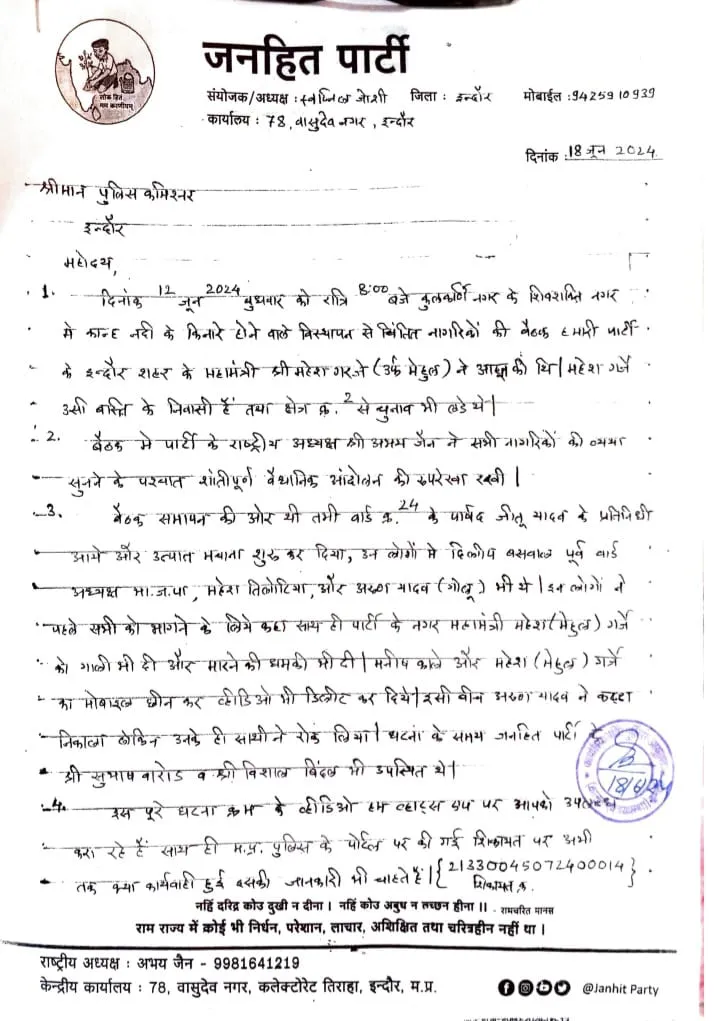 जनहित पार्टी
लोक हित
मम करणीयम्
संयोजक/अध्यक्ष : स्वप्निल जोशी जिला : इन्दौर मोबाईल : 9425910939
कार्यालय : 78, वासुदेव नगर, इन्दौर
दिनांक 18 जून 2024
श्रीमान पुलिस कमिश्नर
इन्दौर
महोदय,
1. दिनांक 12 जून 2024 बुधवार को रात्रि 8:00 बजे कुलकर्णि नगर के शिवशक्ति नगर
मे कान्ह नदी के किनारे होने वाले विस्थापन से चिंतित नागरिकों की बैठक हमारी पार्टी
के इन्दौर शहर के महामंत्री श्री महेश गरजे (उर्फ मेहुल) ने आहूत की थि। महेश गर्जे
उसी बस्ति के निवासी हैं तथा क्षेत्र क्र. 2 से चुनाव भी लडे थे।
2. बैठक मे पार्टी के राष्ट्रीय अध्यक्ष श्री अभय जैन ने सभी नागरिकों की व्यथा
सुनने के पश्चात शांतीपूर्ण वैधानिक आंदोलन की रुपरेखा रखी।
3. बैठक समापन की ओर थी तभी वार्ड क्र. 24 के पार्षद जीतू यादव के प्रतिनिधी
आये और उत्पात मचाना शुरु कर दिया, उन लोगों मे दिलीप बसवाल पूर्व वार्ड
अध्यक्ष भा.ज.पा, महेश तिलोटिया, और अरुण यादव (गोलू) भी थे। इन लोगों ने
पहले सभी को भागने के लिये कहा साथ ही पार्टी के नगर महामंत्री महेश (मेहुल) गर्जे
को गाली भी दी और मारने की धमकी भी दी। मनीष काले और महेश (मेहुल) गर्जे
का मोबाइल छीन कर व्हीडिओ भी डिलीट कर दिये। इसी बीच अरुण यादव ने कट्टा
निकाला लेकिन उनके ही साथी ने रोक लिया। घटना के समय जनहित पार्टी के
श्री सुभाष बारोड व श्री विशाल बिंदल भी उपस्थित थे।
4. इस पूरे घटना क्रम के व्हीडिओ हम व्हाट्स एप पर आपको उपलब्ध
करा रहे हैं साथ ही म.प्र. पुलिस के पोर्टल पर की गई शिकायत पर अभी
तक क्या कार्यवाही हुई इसकी जानकारी भी चाहते हैं। {21330045072400014}
शिकायत क्र.
18/6/24
नहिं दरिद्र कोउ दुखी न दीना। नहिं कोउ अबुध न लच्छन हीना।। - रामचरित मानस
राम राज्य में कोई भी निर्धन, परेशान, लाचार, अशिक्षित तथा चरित्रहीन नहीं था।
राष्ट्रीय अध्यक्ष : अभय जैन - 9981641219
केन्द्रीय कार्यालय : 78, वासुदेव नगर, कलेक्टोरेट तिराहा, इन्दौर, म.प्र. @Janhit Party